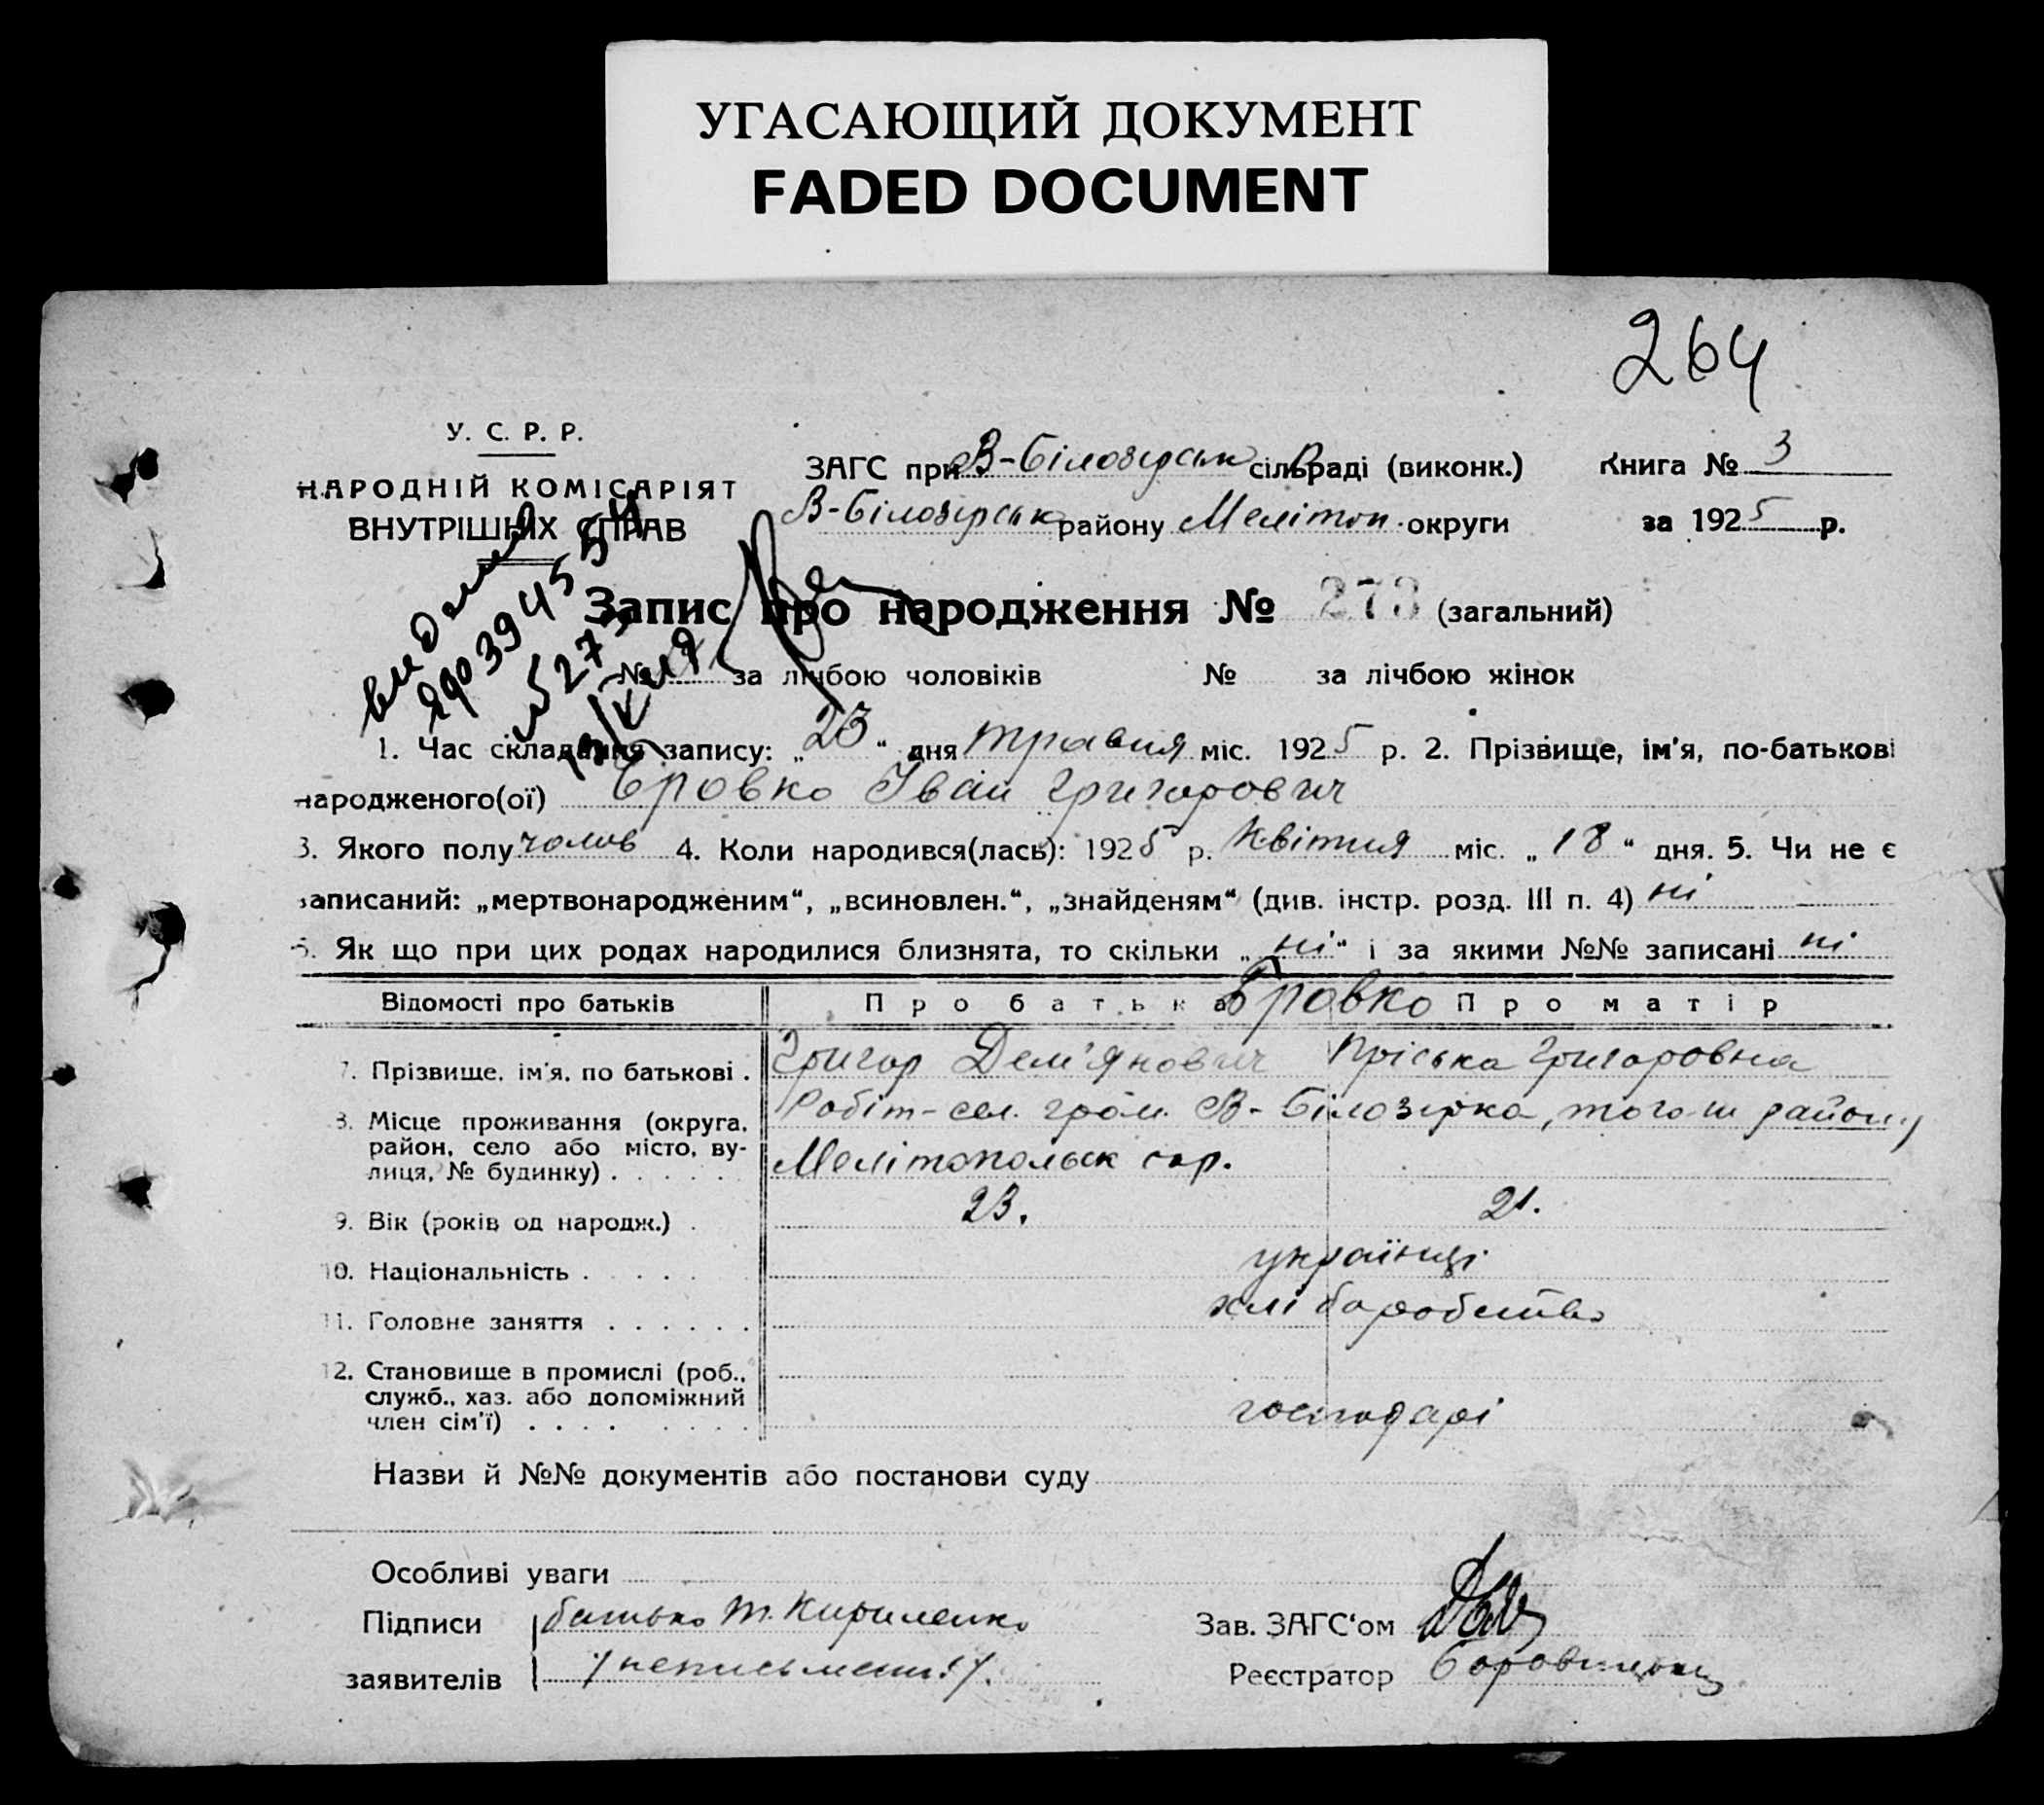 УГАСАЮЩИЙ ДОКУМЕНТ
FADED DOCUMENT
264
У. С. Р. Р.
НАРОДНІЙ КОМІСАРІЯТ
ВНУТРІШНІХ СПРАВ
ЗАГС при В-Білозірськ сільраді (виконк.)
Книга № 3
В-Білозірськ району Мелітоп. округи
за 1925 р.
Запис про народження № 273 (загальний)
№ за лічбою чоловіків № за лічбою жінок
1. Час складання запису: „23“ дня травня міс. 1925 р. 2. Прізвище, ім'я, по-батькові
народженого(ої) Бровко Іван Григорович
3. Якого полу чолов 4. Коли народився(лась): 1925 р. Квітня міс. „18“ дня. 5. Чи не є
записаний: „мертвонародженим“, „всиновлен.“, „знайденям“ (див. інстр. розд. III п. 4) ні
6. Як що при цих родах народилися близнята, то скільки „ні“ і за якими №№ записані ні
Відомості про батьків
Про батька Бровко Про матір
7. Прізвище, ім'я, по батькові . Григор Дем'янович Пріська Григоровна
8. Місце проживання (округа, район, село або місто, вулиця, № будинку) . . . . . . Робіт-сел. гром. В-Білозірка, того-ш району
Мелітопольск окр.
9. Вік (років од народж.) . 23. 21.
10. Національність . . . . . українці
11. Головне заняття . . . . . . хліборобство
12. Становище в промислі (роб., служб., хаз. або допоміжний член сім'ї) . . . . . . . . господарі
Назви й №№ документів або постанови суду
Особливі уваги
Підписи батько т. Кириленко
заявителів /неписьмений/.
Зав. ЗАГС'ом
Реєстратор